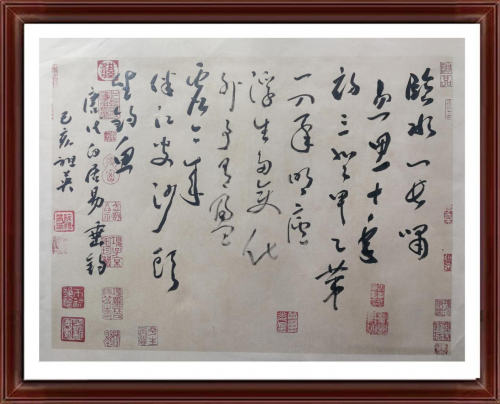 臨水一長嘯
忽思十年
初三登甲乙第
一入承明廬
浮生多變化
外事有盈
虛今來
伴江叟沙頭
坐釣魚
唐代白居易垂釣
己亥祖英